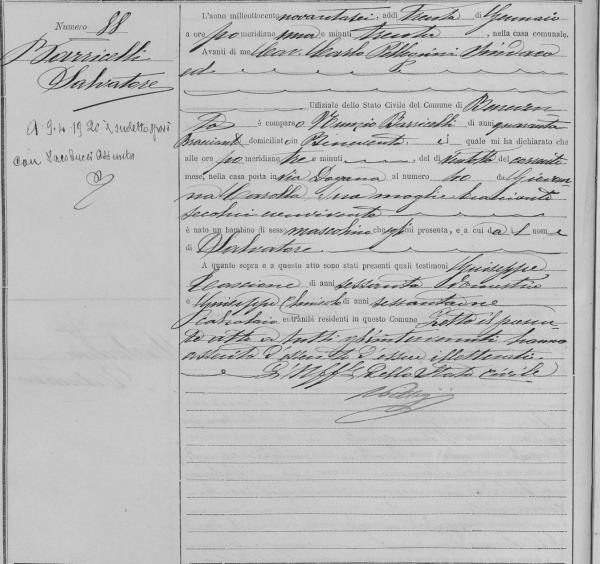 Numero 88
Barricelli
Salvatore
A 9.4.1920 il sudetto sposò
con Assunta
L'anno millottocento novantasei, addì Trenta di Gennaio
a ore po meridiane una e minuti trenta, nella casa comunale.
Avanti di me Cav. Carlo Sindaco
ed
Uffiziale dello Stato Civile del Comune di Beneven
to è comparso Nunzio Barricelli di anni quaranta
Bracciante domiciliato in Benevento il quale mi ha dichiarato che
alle ore po meridiane tre e minuti, del dì ventotto del corrente
mese, nella casa posta in via Dogana al numero da Giovan
na sua moglie bracciante
secolui convivente
è nato un bambino di sesso maschino che egli mi presenta, e a cui dà il nome
di Salvatore
A quanto sopra e a questo atto sono stati presenti quali testimoni Giuseppe
di anni sessanta Domestico
e Giuseppe di anni sessantuno
entrambi residenti in questo Comune. Letto il presen
te atto a tutti gl'intervenuti hanno
asserito d'essere illetterati.
L'Uff dello Stato civile